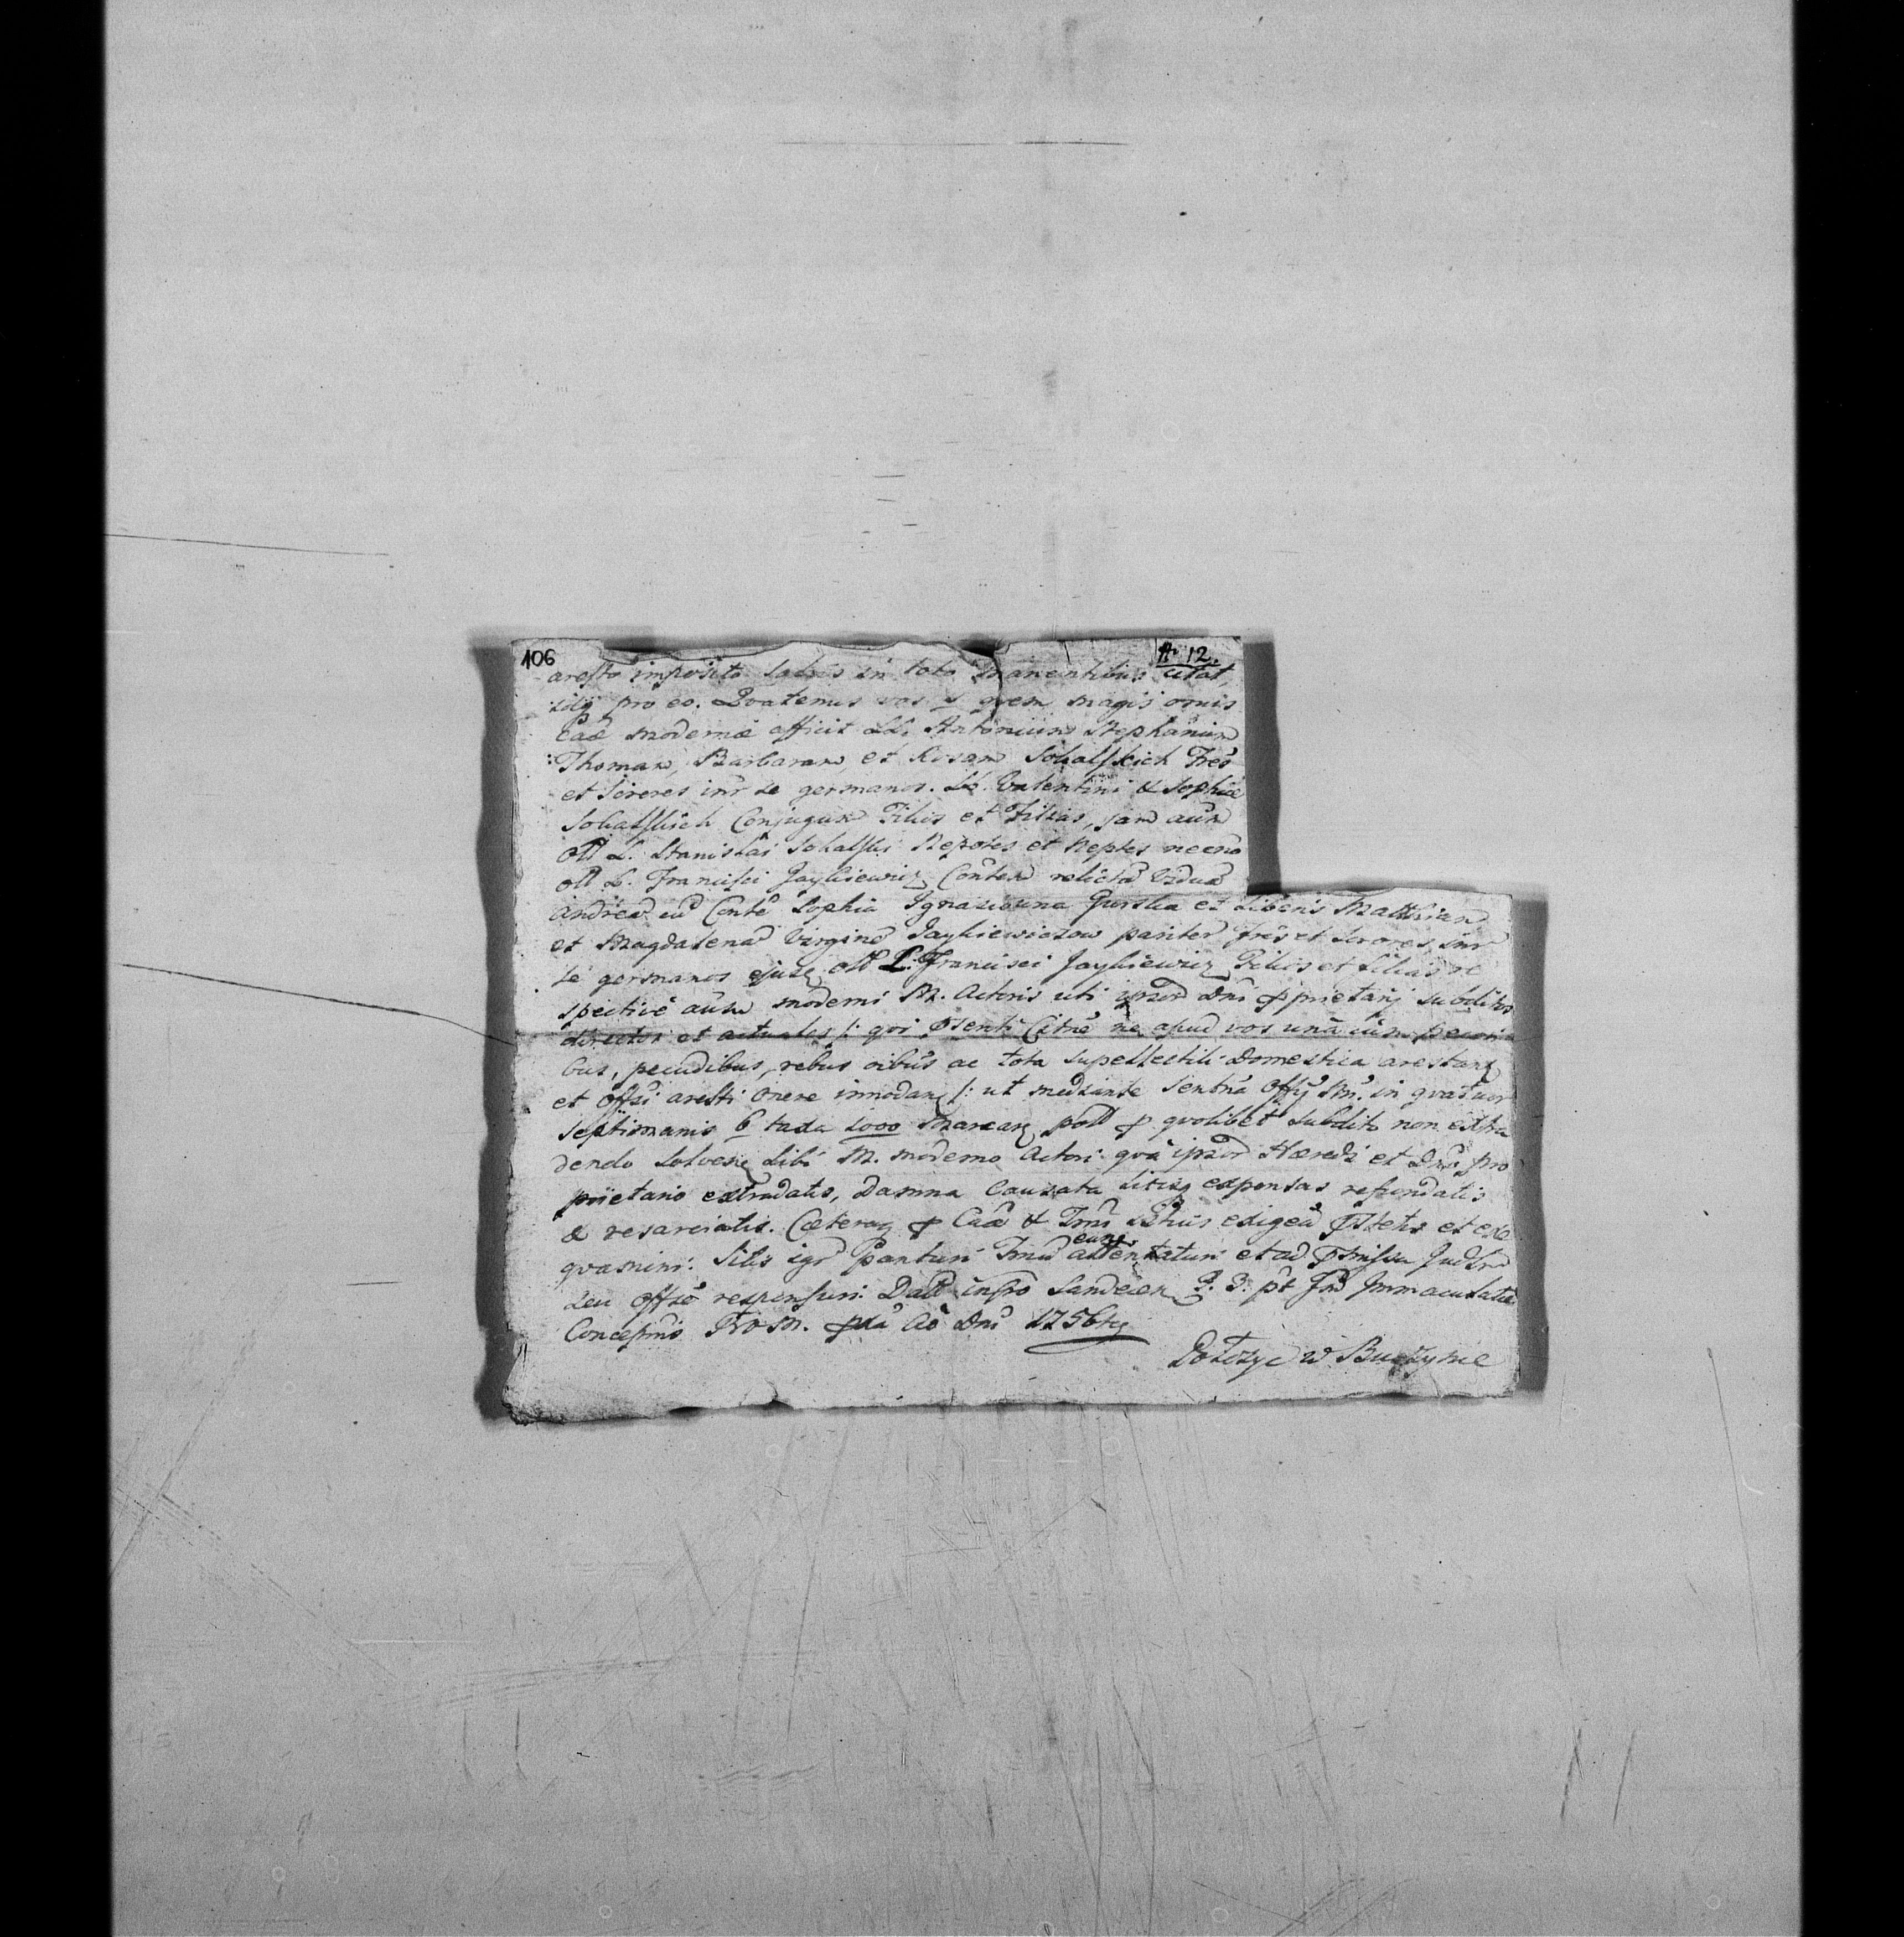 106
A. 12.
aresto imposito salvis in toto manentibus citat,
idq pro eo. Quatenus vos et quem magis omis
Caae modernae afficit LL. Antonium Stephanum
Thomam, Barbaram, et Rosam Sokalskich Fres
et Sorores inr se germanos. LL. Valentini & Sophiae
Sokalskich Conjugum Filios et Filias, jam aũm
olt L. Stanislai Sokalski Nepotes et Neptes necno
olt L. Francisci Jaykiewicz Contem relictã Viduã
Andream cũ Conte Sophia Ignacowna Gurska et Liberis Mathiam
et Magdalenã Virginẽ Jaykiewiczow pariter frẽs et Sorores inr
se germanos ejusq olt L. Francisci Jaykiewicz Filios et Filias re
spective aũm moderni M. Actoris uti ipsor Dni pprietarij subditos
directos et actuales /: qvi psenti Citne ne apud vos unã cũm pecori
bus, pecudibus, rebus oibus ac tota supellectili Domestica arestanr
et Offsi aresti onere innodanr /: ut mediante Sentña Offij Im. in qvatuor
Septimanis b taxa 1000 Marcar poll p qvolibet Subdito non extra
dendo Solvens sibi M. moderno Actori qvã ipsor Haeredi et Dno pro
prietario extradatis, Damna Causata litisq expensas refundatis
& resarciatis. Caeteraq p Caae & Tmi sthus exigeã pstetis et exe
qvamini. Sitis igr Parituri Tmũ attentaturi et ad pmissa Judlr
eunr
seu Offse responsuri. Datt in Cro Sandecen F. 3. pt Fm Immaculatae
Concepnis BVM. pxa Ao Dni 1756to
Dołożyc w Burzynie